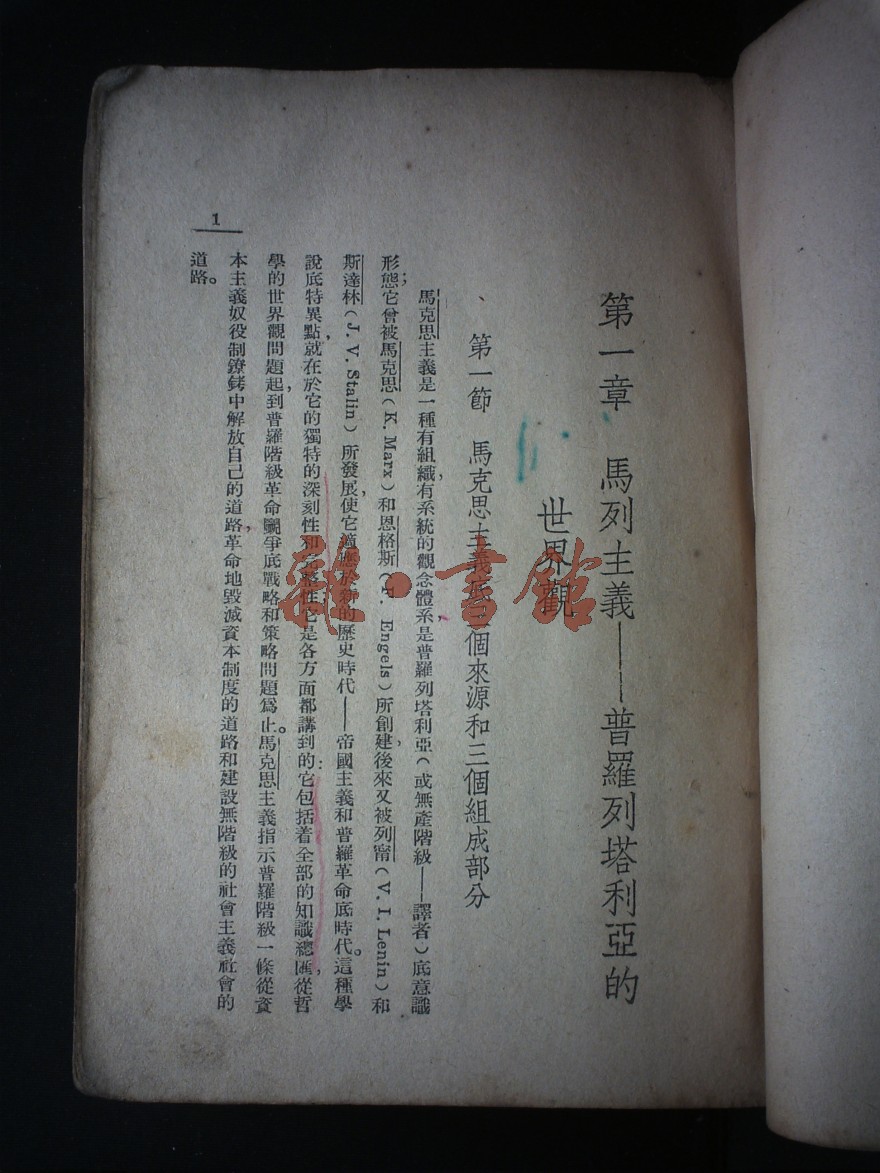 第一章　馬列主義——普羅列塔利亞的
世界觀
第一節　馬克思主義底三個來源和三個組成部分
馬克思主義是一種有組織有系統的觀念體系，是普羅列塔利亞（或無產階級——譯者）底意識
形態；它曾被馬克思（K. Marx）和恩格斯（F. Engels）所創建，後來又被列甯（V. I. Lenin）和
斯達林（J. V. Stalin）所發展，使它適應於新的歷史時代——帝國主義和普羅革命底時代。這種學
說底特異點，就在於它的獨特的深刻性和完整性，它是各方面都講到的：它包括着全部的知識總匯，從哲
學的世界觀問題起，到普羅階級革命鬭爭底戰略和策略問題爲止。馬克思主義指示普羅階級一條從資
本主義奴役制鐐銬中解放自己的道路，革命地毀滅資本制度的道路和建設無階級的社會主義社會的
道路。
1
龍·書館